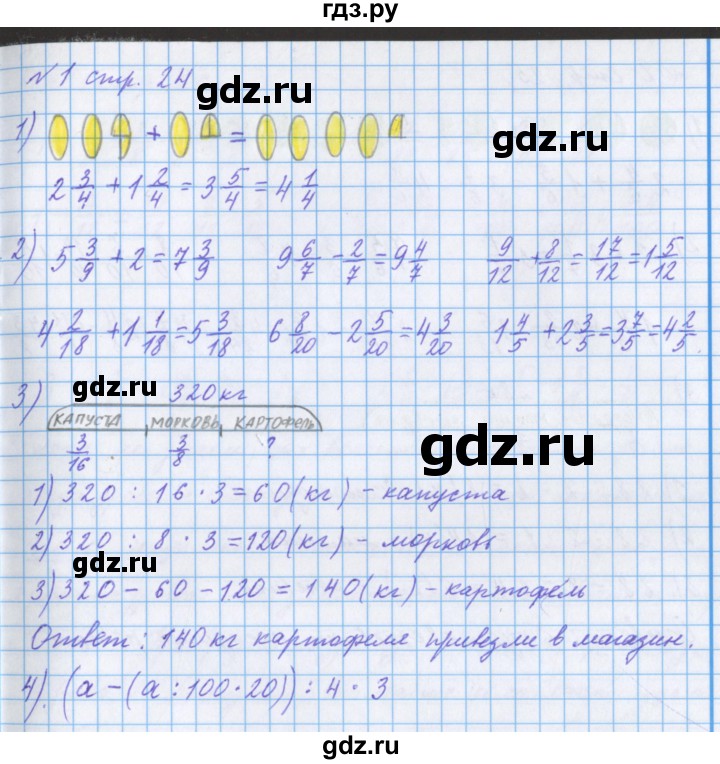 гдз.ру
№1 стр. 24
gdz.ru
1) + =
gdz.ru
2 3/4 + 1 2/4 = 3 5/4 = 4 1/4
2) 5 3/9 + 2 = 7 3/9 9 6/7 - 2/7 = 9 4/7 9/12 + 8/12 = 17/12 = 1 5/12
4 2/18 + 1 1/18 = 5 3/18 6 8/20 - 2 5/20 = 4 3/20 1 4/5 + 2 3/5 = 3 7/5 = 4 2/5.
gdz.ru
3) 320 кг
КАПУСТА МОРКОВЬ КАРТОФЕЛЬ
3/16 3/8 ?
gdz.ru
1) 320 : 16 · 3 = 60 (кг) - капуста
2) 320 : 8 · 3 = 120 (кг) - морковь
gdz.ru
3) 320 - 60 - 120 = 140 (кг) - картофель
Ответ: 140 кг картофеля привезли в магазин.
4). (а - (а : 100 · 20)) : 4 · 3
gdz.ru